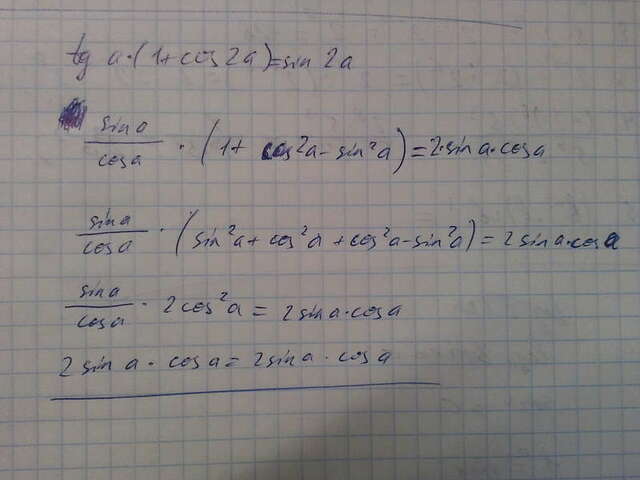 tg a · (1 + cos 2a) = sin 2a
sin a / cos a · (1 + cos²a - sin²a) = 2 · sin a · cos a
sin a / cos a · (sin²a + cos²a + cos²a - sin²a) = 2 sin a · cos a
sin a / cos a · 2 cos²a = 2 sin a · cos a
2 sin a · cos a = 2 sin a · cos a